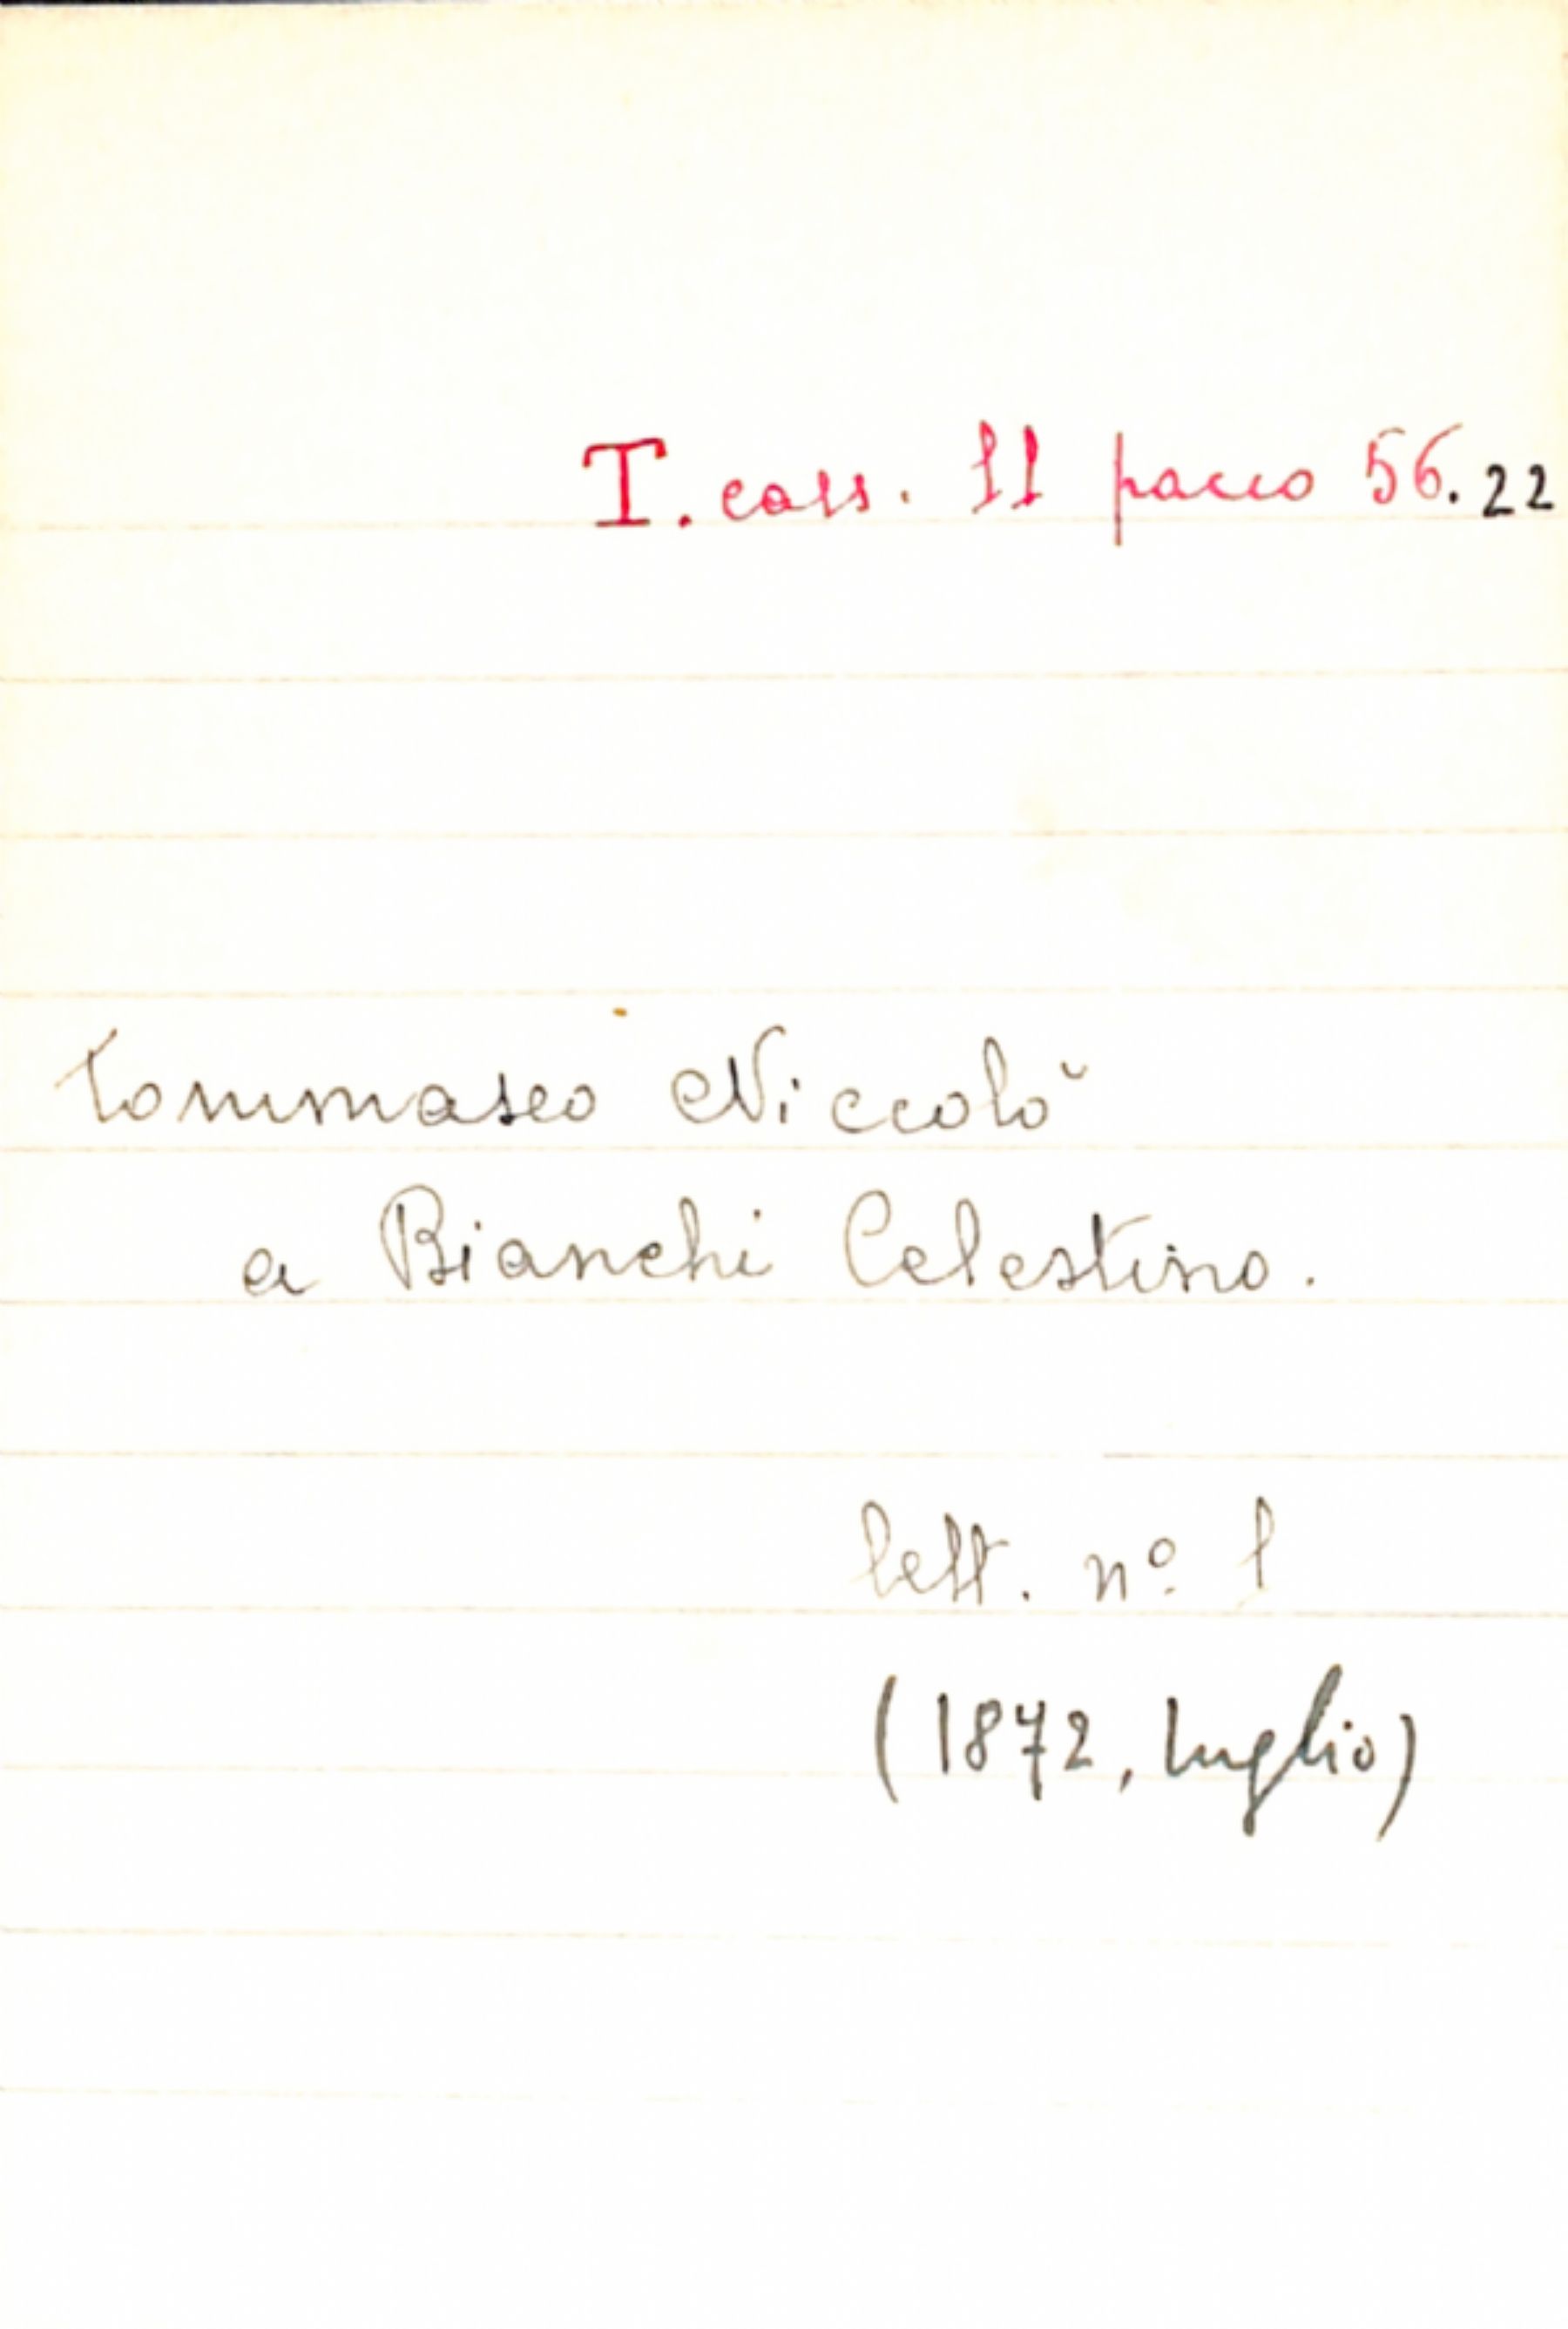 T. cass. 11 pacco 56.22
Tommaseo Niccolò
a Bianchi Celestino.
lett. nº 1
(1872, luglio)